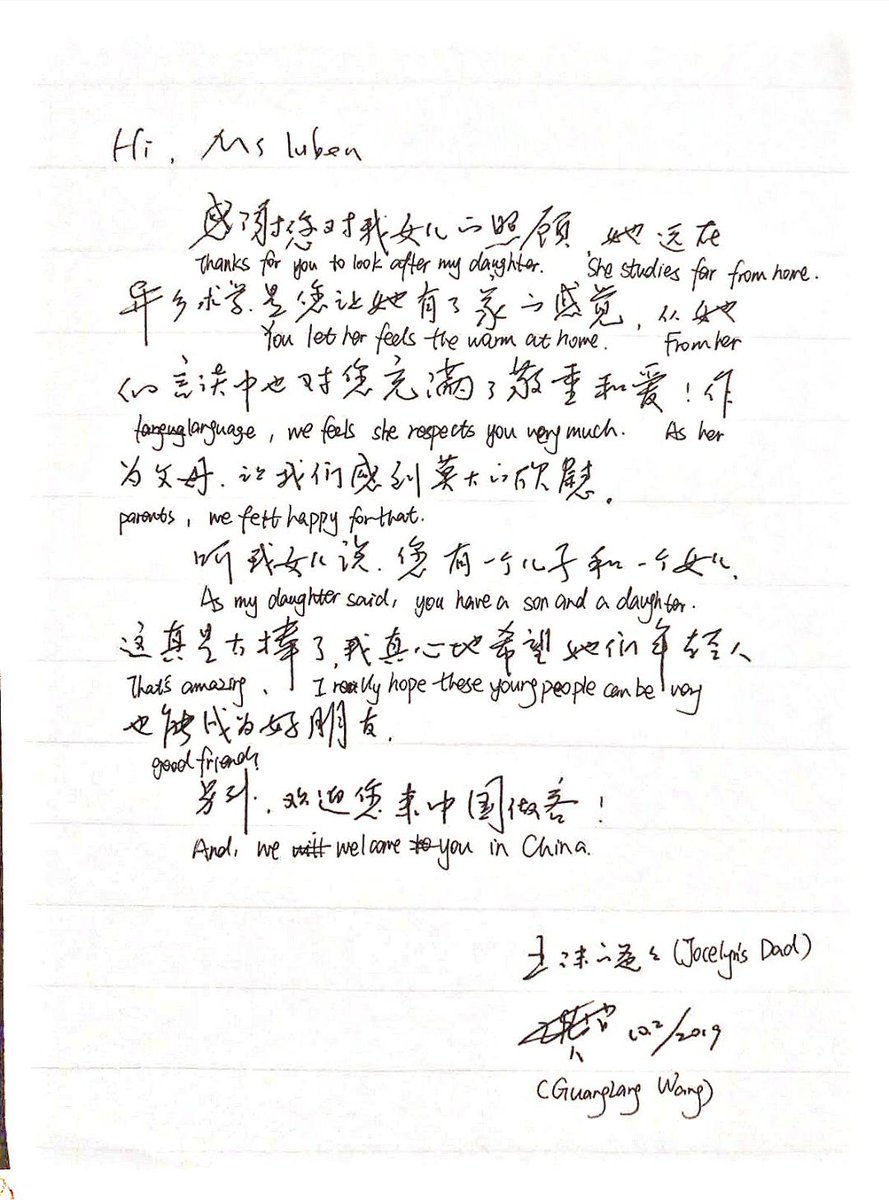 Hi, Ms luben
感谢您对我女儿的照顾，她远在
Thanks for you to look after my daughter. She studies far from home.
异乡求学.是您让她有了家的感觉，从她
You let her feels the warm at home. From her
们言谈中也对您充满了敬重和爱！作
language, we feels she respects you very much. As her
为父母.让我们感到莫大的欣慰。
parents, we felt happy for that.
听我女儿说.您有一个儿子和一个女儿.
As my daughter said, you have a son and a daughter.
这真是太棒了,我真心地希望她们年轻人
That's amazing, I really hope these young people can be very
也能成为好朋友.
good friends.
另外.欢迎您来中国做客！
And, we will welcome to you in China.
(Jocelyn's Dad)
10.2/2019
(Guanglang Wang)